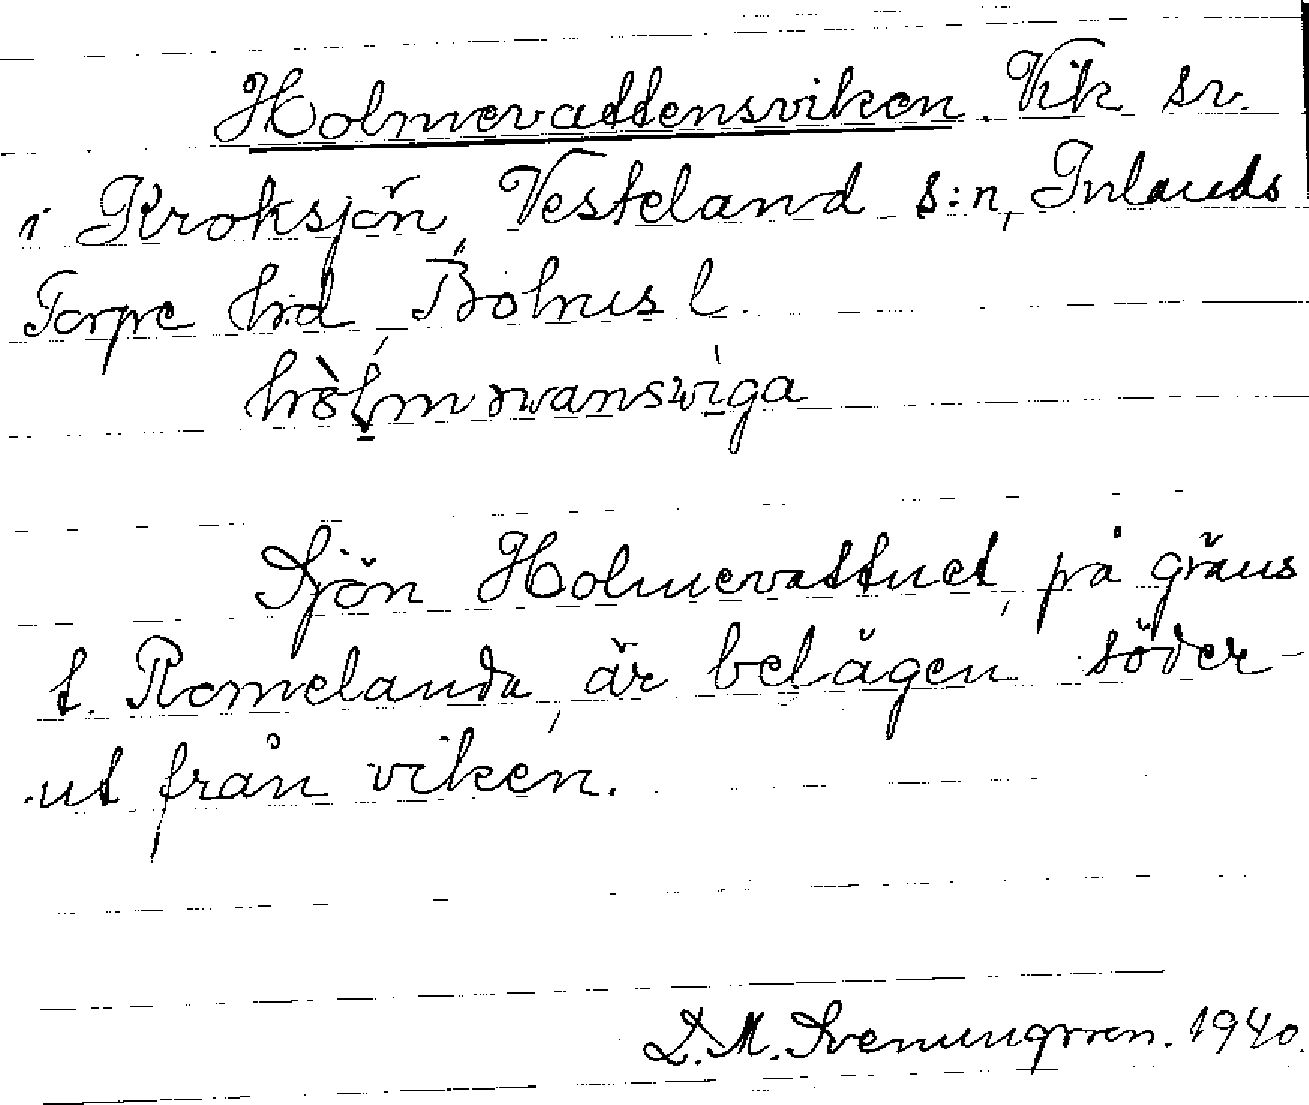 Holmevattensviken. Vik sv.
i Kroksjön, Vesteland s:n, Inlands
Torpe hd, Bohus l.
hòlməvansvìga
Sjön Holmevattnet, på gräns
t. Romelanda, är belägen söder-
ut från viken.
L.M. Svenungsson. 1940.